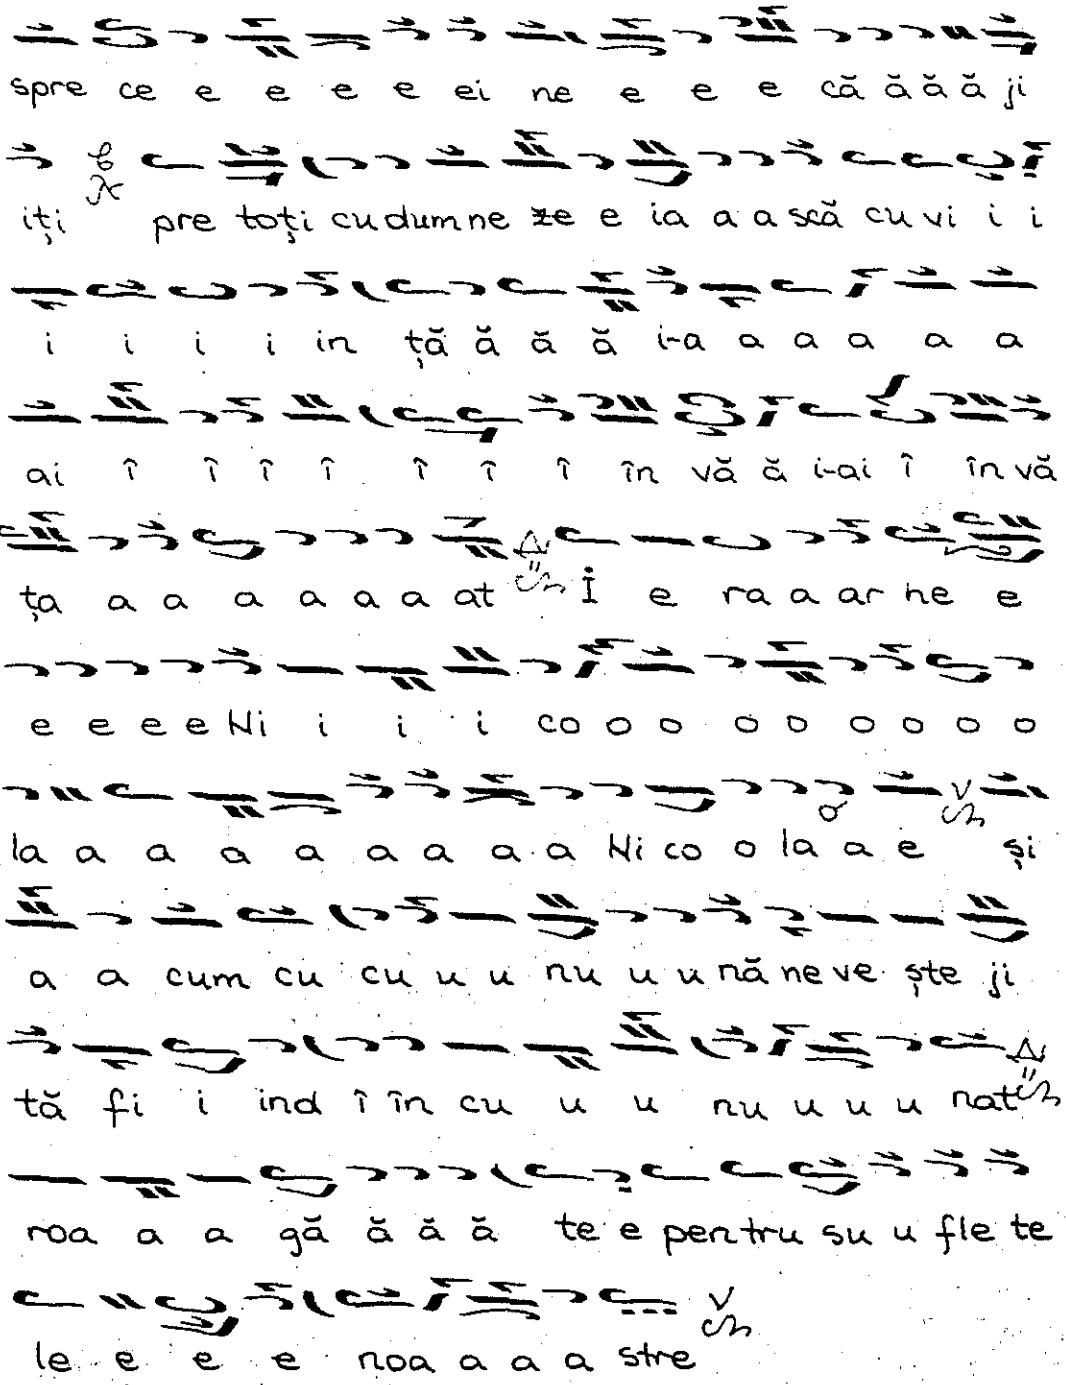 spre ce e e e e ei ne e e e că ă ă ă ji
iți pre toți cu dum ne ze e ia a a scă cu vi i i
i i i i in ță ă ă ă i-a a a a a a
ai î î î î î î î în vă ă i-ai î în vă
ța a a a a a a at I e ra a ar he e
e e e e Ni i i i co o o o o o o o o
la a a a a a a a a Ni co o la a e și
a a cum cu cu u u nu u u nă ne ve ște ji
tă fi i ind î în cu u u nu u u u nat
roa a a gă ă ă ă te e pentru su u fle te
le e e e noa a a a stre